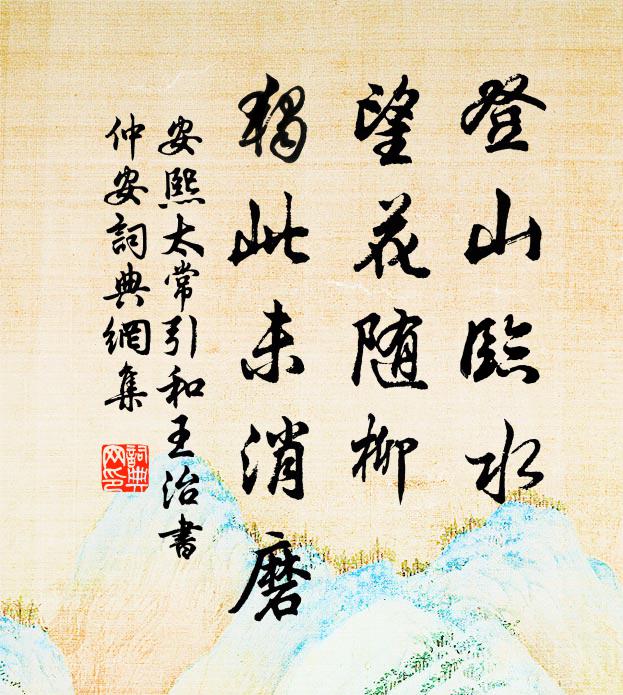 登山臨水
望花随柳
獨此未消磨
安熙太常引和王治書
仲安詞典網集
詞典网印